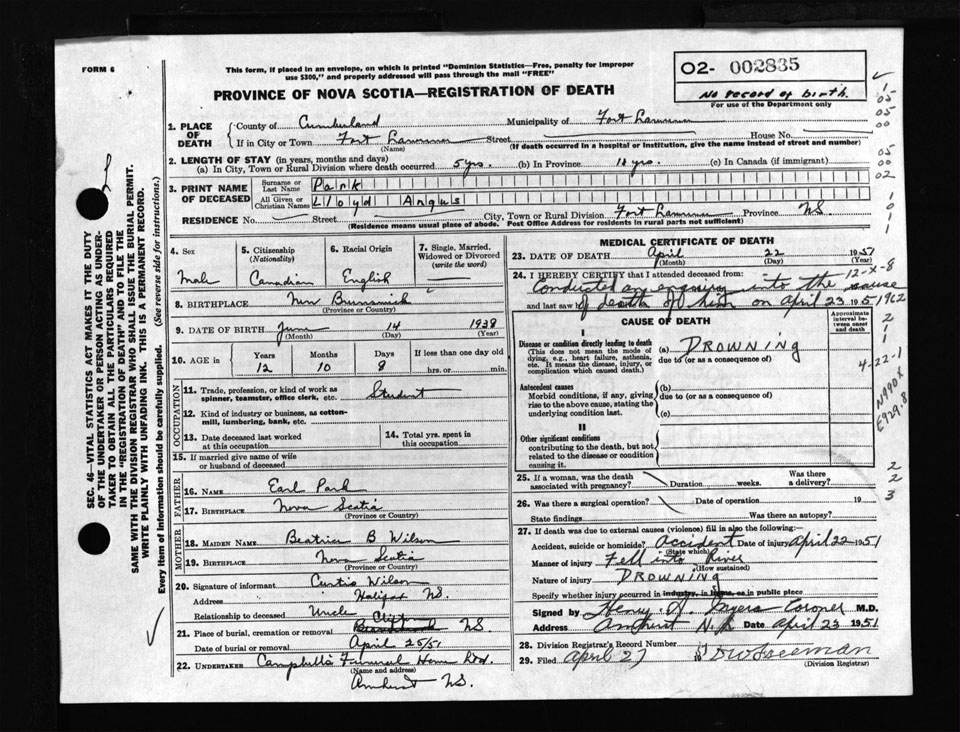 FORM 6
This form, if placed in an envelope, on which is printed "Dominion Statistics—Free, penalty for improper
use $300," and properly addressed will pass through the mail "FREE"
O2- 002835
No record of birth.
For use of the Department only
PROVINCE OF NOVA SCOTIA—REGISTRATION OF DEATH
1. PLACE OF DEATH { County of Cumberland Municipality of Fort
If in City or Town Fort Street House No.
(Name) (If death occurred in a hospital or institution, give the name instead of street and number)
2. LENGTH OF STAY (in years, months and days)
(a) In City, Town or Rural Division where death occurred 5 yrs. (b) In Province 11 yrs. (c) In Canada (if immigrant)
3. PRINT NAME OF DECEASED { Surname or Last Name Park
All Given or Christian Names Lloyd Angus
RESIDENCE No. Street City, Town or Rural Division Fort Province NS
(Residence means usual place of abode. Post Office Address for residents in rural parts not sufficient)
4. Sex
Male
5. Citizenship
(Nationality)
Canadian
6. Racial Origin
English
7. Single, Married,
Widowed or Divorced
(write the word)
8. BIRTHPLACE New Brunswick
9. DATE OF BIRTH June 14 1938
(Month) (Day) (Year)
10. AGE in Years Months Days If less than one day old
12 10 8 hrs. or min.
OCCUPATION
11. Trade, profession, or kind of work as
spinner, teamster, office clerk, etc. Student
12. Kind of industry or business, as cotton-
mill, lumbering, bank, etc.
13. Date deceased last worked
at this occupation
14. Total yrs. spent in
this occupation
15. If married give name of wife
or husband of deceased
FATHER
16. NAME Earl Park
17. BIRTHPLACE Nova Scotia
(Province or Country)
MOTHER
18. MAIDEN NAME Beatrice B Wilson
19. BIRTHPLACE Nova Scotia
(Province or Country)
20. Signature of informant Curtis Wilson
Address Halifax NS.
Relationship to deceased Uncle
21. Place of burial, cremation or removal Clifton NS.
Date of burial or removal April 25/51
22. UNDERTAKER Campbell's Funeral Home Ltd.
(Name and address)
Amherst NS.
MEDICAL CERTIFICATE OF DEATH
23. DATE OF DEATH April 22 1951
(Month) (Day) (Year)
24. I HEREBY CERTIFY that I attended deceased from:
Conducted an enquiry into the cause
and last saw h of death of him on April 23 1951
CAUSE OF DEATH
Approximate
interval between
onset
and death
I
Disease or condition directly leading to death
(This does not mean the mode of
dying, e.g., heart failure, asthenia,
etc. It means the disease, injury, or
complication which caused death.)
(a) DROWNING
due to (or as a consequence of)
Antecedent causes
Morbid conditions, if any, giving
rise to the above cause, stating the
underlying condition last.
(b)
due to (or as a consequence of)
(c)
II
Other significant conditions
contributing to the death, but not
related to the disease or condition
causing it.
25. If a woman, was the death
associated with pregnancy? Duration weeks. Was there
a delivery?
26. Was there a surgical operation? Date of operation 19
State findings Was there an autopsy?
27. If death was due to external causes (violence) fill in also the following:—
Accident, suicide or homicide? Accident Date of injury April 22 1951
(State which)
Manner of injury Fell into River
(How sustained)
Nature of injury DROWNING
Specify whether injury occurred in industry, in home, or in public place
Signed by Henry Coroner M.D.
Address Amherst N.S. Date April 23 1951
28. Division Registrar's Record Number
29. Filed April 27 19
(Division Registrar)
SEC. 46—VITAL STATISTICS ACT MAKES IT THE DUTY
OF THE UNDERTAKER OR PERSON ACTING AS UNDER-
TAKER TO OBTAIN ALL THE PARTICULARS REQUIRED
IN THE "REGISTRATION OF DEATH" AND TO FILE THE
SAME WITH THE DIVISION REGISTRAR WHO SHALL ISSUE THE BURIAL PERMIT.
WRITE PLAINLY WITH UNFADING INK. THIS IS A PERMANENT RECORD.
Every item of information should be carefully supplied. (See reverse side for instructions.)
1
05
05
00
05
00
02
1
0
1
1
12-X-8
1962
2
1
1
4-22-1
N990X
E929.8
2
2
3